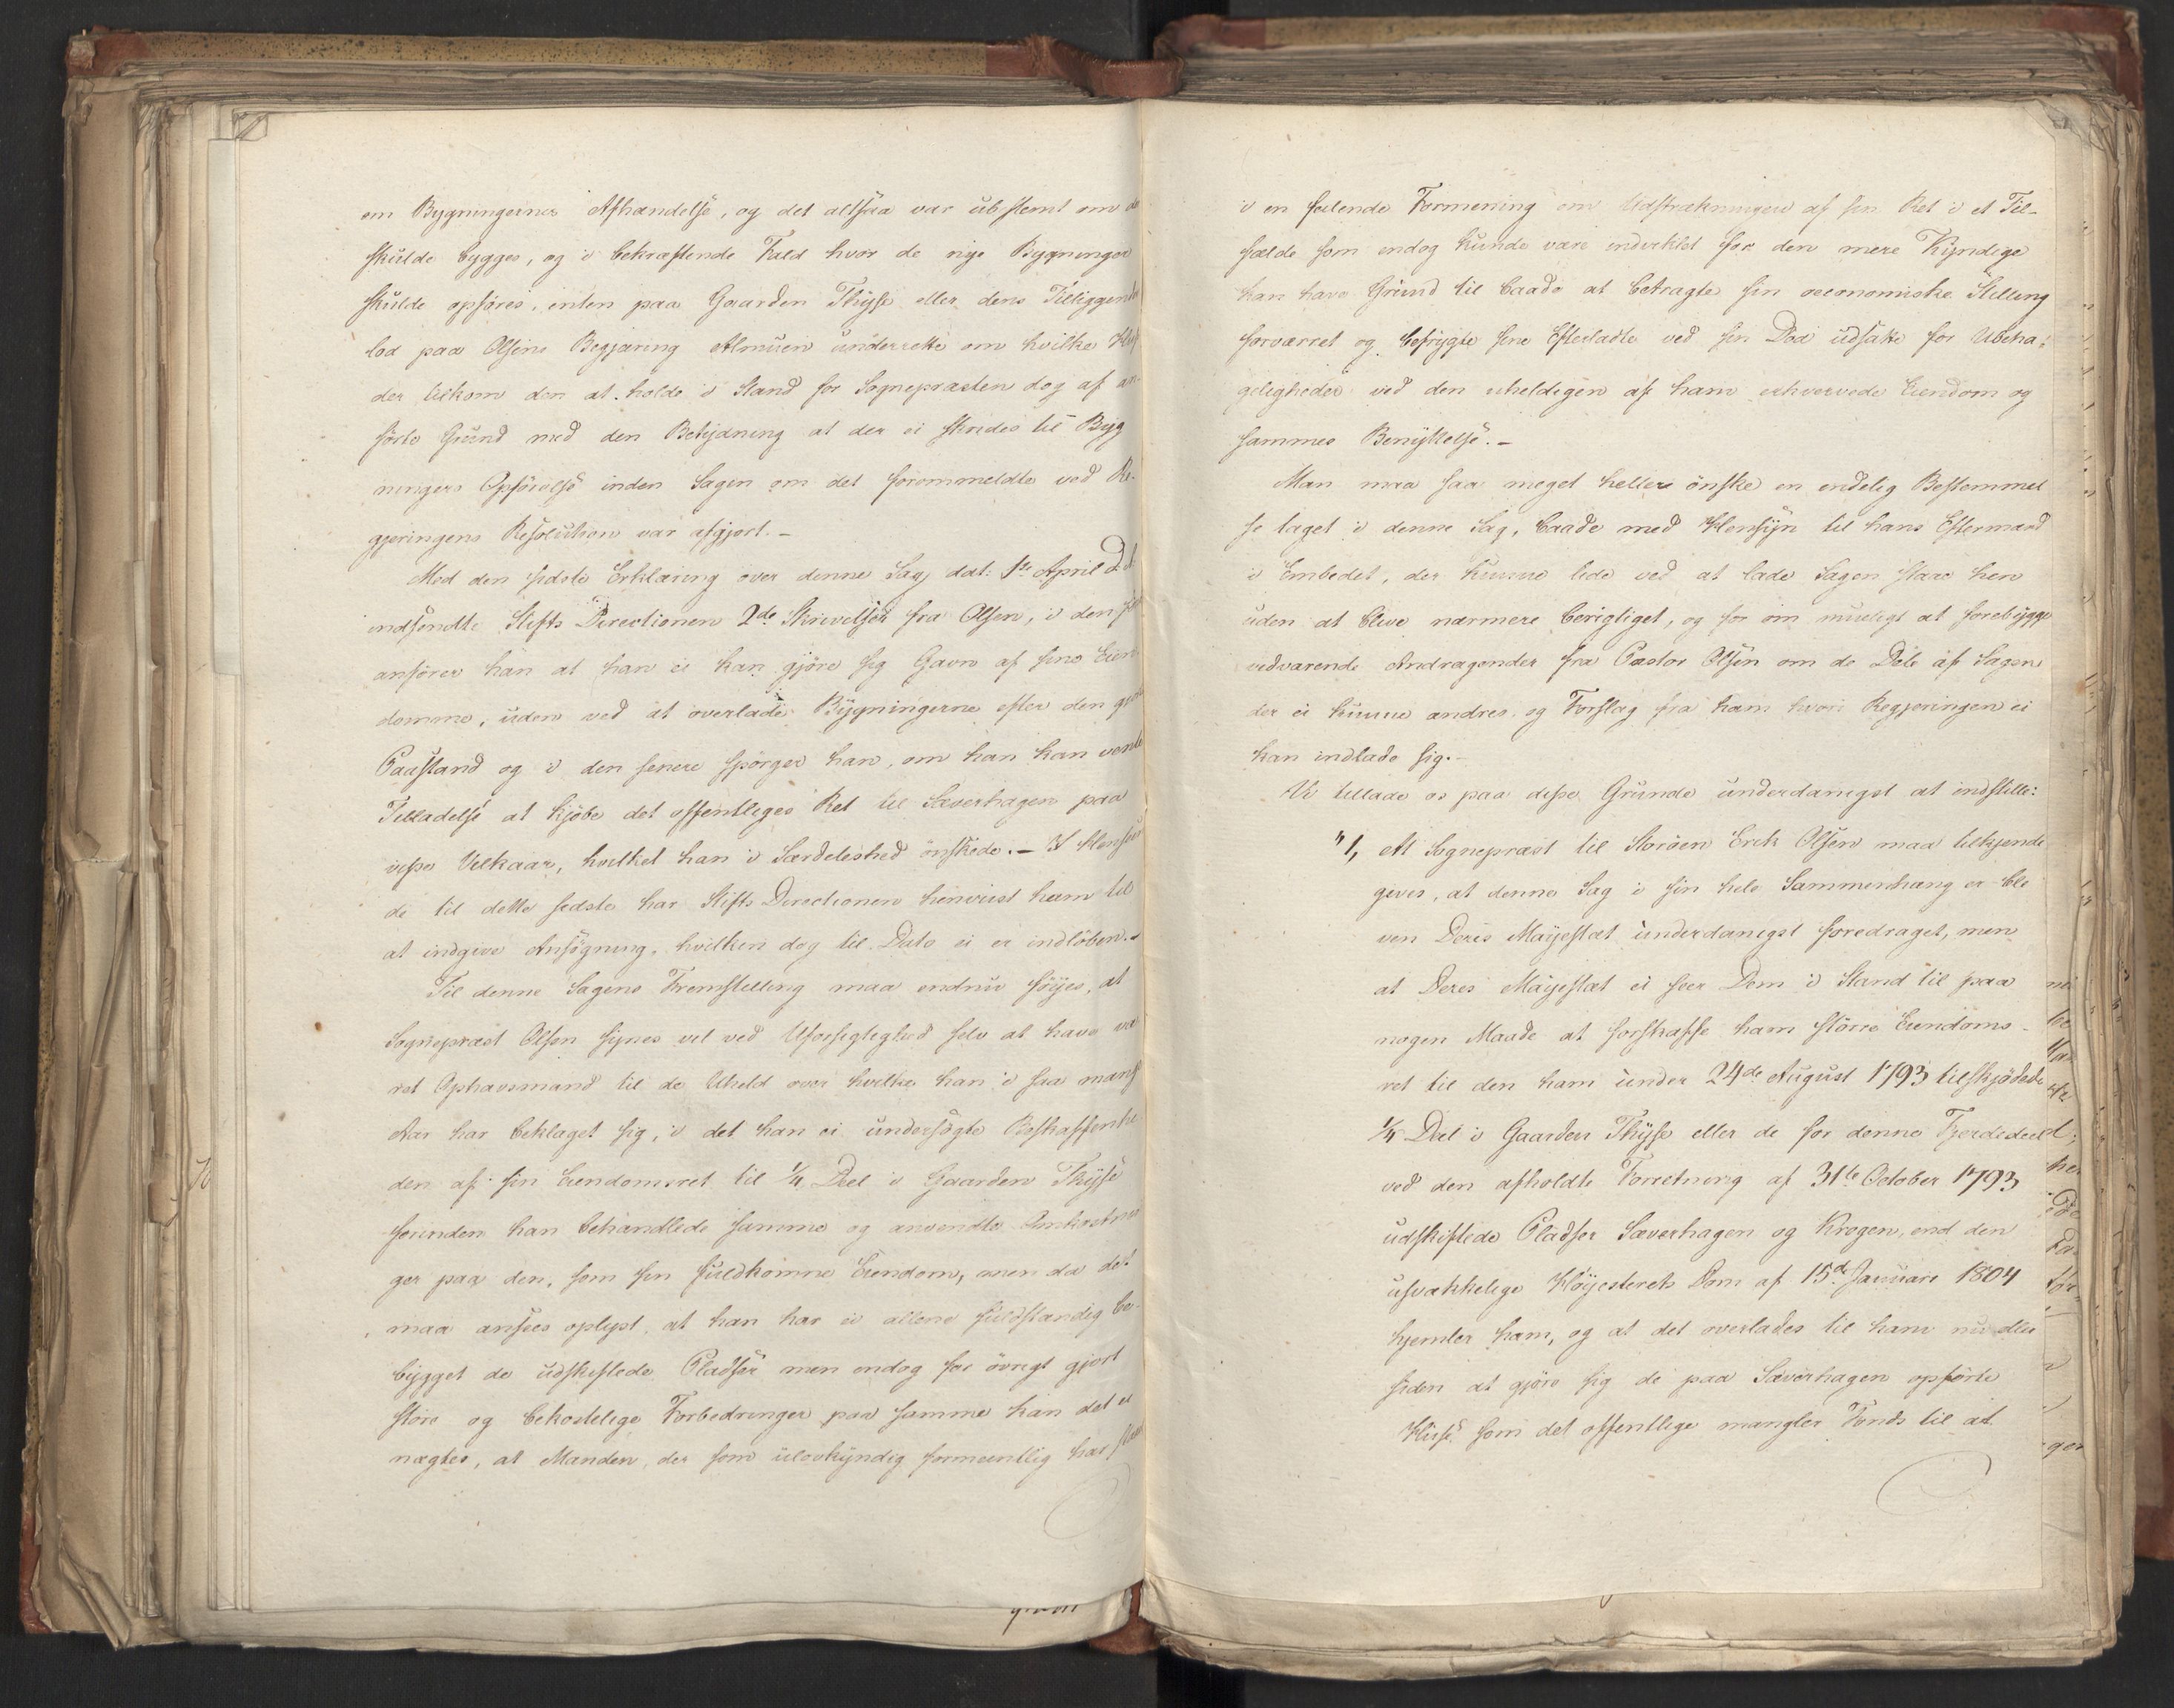 om Bygningernes Afhændelse, og det altsaa var ubestemt om de
skulde bygges, og i bekræftende Fald hvor de nye Bygninger
skulde opføres, enten paa Gaarden Thyse eller dens Tilliggende
lod paa Olsens Begjæring Almuen underrette om hvilke
der tilkom den at holde i Stand for Sognepræsten dog af an-
førte Grund med den Betydning at der ei skrides til Byg
ningers Opførelse inden Sagen om det forommeldte ved Re-
gjeringens Resolution var afgjort.-
Med den sidste Erklæring over denne Sag dat: 1ste April
indsendte Stifts Directionen 2de Skrivelser fra Olsen, i den
anfører han at han ei kan gjøre sig Gavn af sine Eien
domme, uden ved at overlade Bygningerne efter den
Paastand og i den senere spørger han, om han kan vente
Tilladelse at kjøbe det offentliges Ret til Sæverhagen paa
visse Vilkaar, hvilket han i Særdeleshed ønskede.- I Hensee
de til dette sidste har Stifts Directionen henviist ham til
at indgive Ansøgning, hvilken dog til Dato ei er indløben.-
Til denne Sagens Fremstilling maa endnu føyes, at
Sognepræst Olsen synes vel ved Uforsigtighed selv at have væ
ret Ophavsmand til de Uheld over hvilke han i saa mange
Aar har beklaget sig, i det han ei undersøgte Beskaffenhe
den af sin Eiendomsret til 1/4 Deel i Gaarden Thyse
forinden han behandlede samme og anvendte Omkostnin
ger paa den, som sin fuldkomne Eiendom, men da det
maa ansees oplyst, at han har ei allene fuldstændig be-
bygget de udskiftede Pladser men endog for øvrigt gjort
store og bekostelige Forbedringer paa samme kan det ei
nægtes, at Manden, der som ulovkyndig formeentlig har
i en feilende Formening om Udstrækningen af sin Ret i et Til-
fælde som endog kunde være indviklet for den mere Kyndige
kan have Grund til baade at betragte sin oeconomiske Stilling
forværret og befrygte sine Efterladte ved sin Død udsatte for Ubeha-
geligheder ved den uheldigen af ham erhvervede Eiendom og
sammes Benyttelse.-
Man maa saa meget hellere ønske en endelig Bestemmel
se taget i denne Sag, baade med Hensyn til hans Eftermand
i Embedet, der kunne lide ved at lade Sagen staae hen
uden at blive nærmere berigtiget, og for om mueligt at forebygge
vedvarende Andragender fra Pastor Olsen om de Dele af Sagen
der ei kunne ændres og Forslag fra ham hvori Regjeringen ei
kan indlade sig.-
Vi tillade os paa disse Grunde underdanigst at indstille:
"1, At Sognepræst til Storøen Erik Olsen maa tilkjende
gives, at denne Sag i sin hele Sammenhæng er ble
ven Deres Mayestæt underdanigst foredraget, men
at Deres Mayestæt ei seer Dem i Stand til paa
nogen Maade at forskaffe ham større Eiendoms-
ret til den ham under 24de August 1793 tilskjødede
1/4 Deel i Gaarden Thyse eller de for denne Fjerdedeel
ved den afholdte Forretning af 31te October 1793
udskiftede Pladser Sæverhagen og Krogen, end den
usvækkelige Høyesterets Dom af 15de Januari 1804
hjemler ham, og at det overlades til ham nu eller
siden at gjøre sig de paa Sæverhagen opførte
Huse som det offentlige mangler Fonds til at